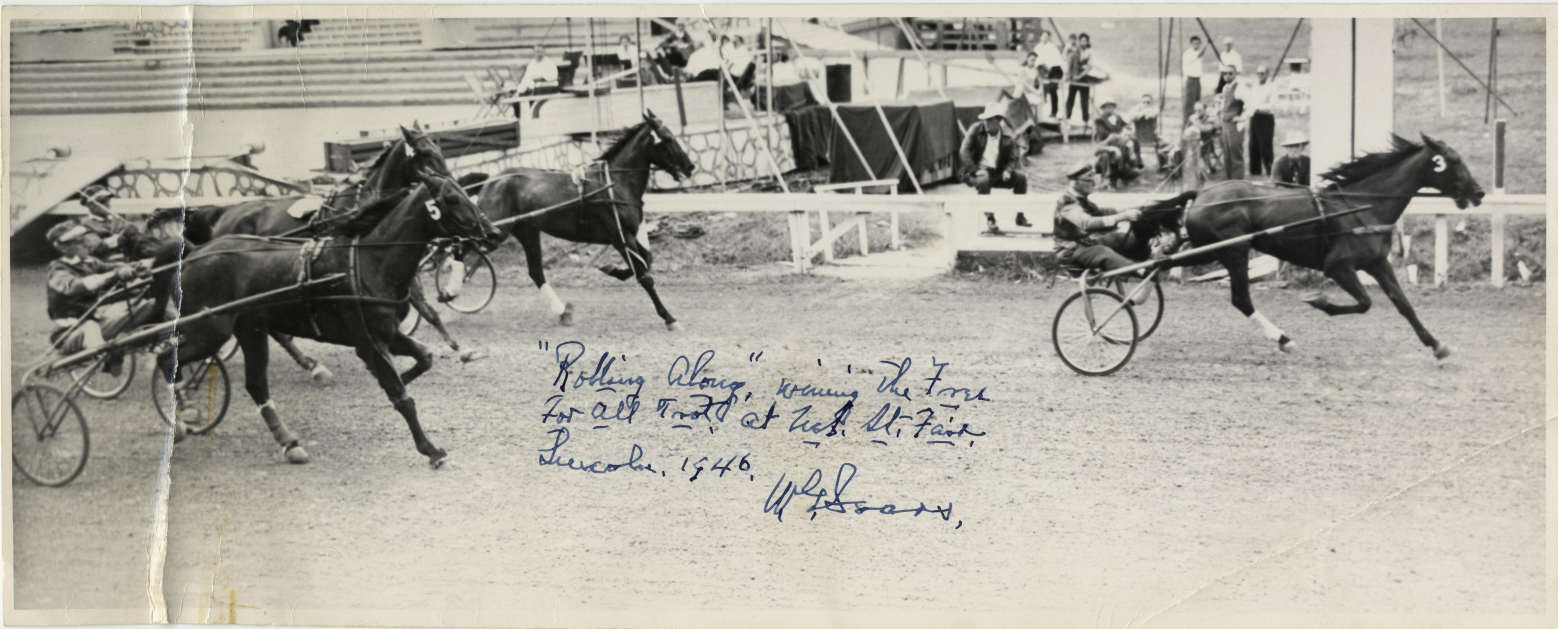 3
5
"Rolling Along", wining the Free
For All Trot, at Neb. St. Fair,
Lincoln, 1946.